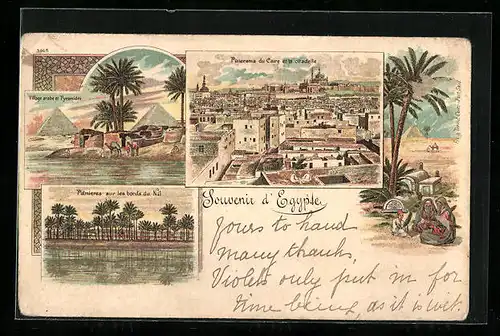 3868
Panorama du Caire et la citadelle
Village arabe et Pyramides
Palmieres sur les bords du Nil
Souvenir d'Egypte.
Yours to hand
many thanks,
Violets only put in for
time being, as it is wet.